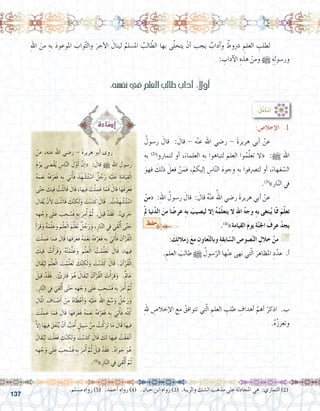 لطلب العلم شروطٌ وآدابٌ يجب أنْ يتحلّى بها الطّالبُ المسلمُ لينالَ الأجرَ والثّوابَ الموعودَ به منَ اللهِ
ورسولِهِ ﷺ ومنْ هذه الآدابِ:
أولاً. آداب طالب العلم في نفسه.
1. الإخلاصُ:
عنْ أبي هريرةَ – رضي الله عنْه – قالَ: قالَ رسولُ
اللهِ ﷺ: «لا تعلَّموا العلمَ لتباهوا به العلماءَ، أو لتماروا(2) به
السّفهاءَ، أو لتصرفوا به وجوهَ النّاسِ إليكمْ، فمَنْ فعلَ ذلك فهوَ
في النّارِ»(3).
عنْ أبي هريرةَ رضي اللهُ عنْه قالَ: قالَ رسولُ اللهِ: «مَنْ
تعلَّمَ علمًا ممّا يُبتغى به وجهُ اللهِ لا يتعلَّمُهُ إلا ليصيبَ به عرضًا منَ الدّنيا لمْ
يجدْ عرفَ الجنّةِ يومَ القيامةِ»(4).
حفظ
منْ خلالِ النّصوصِ السّابقةِ وبالتّعاونِ معَ زملائكَ:
أ. عدّدِ المظاهرَ الّتي نهى عنها الرّسولُ ﷺ طالبَ العلمِ.
ب. اذكرْ أهمَّ أهدافِ طلبِ العلمِ الّتي تتوافقُ معَ الإخلاصِ للهِ
وتعزّزُهُ.
إضاءة
روى أبو هريرة – رضي الله عنه، عن
رسول الله ﷺ قال: «إنَّ أوّلَ النّاسِ يُقضى يومَ
القيامةِ عليه رجلٌ استُشهدَ، فأُتيَ به فعرّفَهُ نعمَهُ
فعرفَها، قالَ: فما عملتَ فيها؟ قالَ: قاتلتُ فيكَ حتّى
استُشهدتُ، قالَ: كذبتَ، ولكنّكَ قاتلتَ لأنْ يُقالَ
جريءٌ، فقدْ قيلَ، ثمَّ أُمرَ به فسُحبَ على وجهِهِ حتّى
أُلقيَ في النّارِ، ورجلٌ تعلّمَ العلمَ وعلّمَهُ وقرأَ
القرآنَ، فأُتيَ به فعرّفَهُ نعمَهُ فعرفَها، قالَ: فما عملتَ
فيها؟ قالَ: تعلّمتُ العلمَ وعلّمتُهُ وقرأتُ فيكَ
القرآنَ، قالَ: كذبتَ، ولكنّكَ تعلّمتَ العلمَ ليُقالَ
عالمٌ، وقرأتَ القرآنَ ليُقالَ هوَ قارئٌ، فقدْ قيلَ
ثمَّ أُمرَ به فسُحبَ على وجهِهِ حتّى أُلقيَ في النّارِ.
ورجلٌ وسّعَ اللهُ عليه وأعطاهُ منْ أصنافِ المالِ
كلِّهِ، فأُتيَ به فعرّفَهُ نعمَهُ فعرفَها قالَ: فما عملتَ
فيها؟ قالَ: ما تركتُ منْ سبيلٍ تحبُّ أنْ يُنفقَ فيها إلّا
أنفقتُ فيها لكَ، قالَ: كذبتَ، ولكنّكَ فعلتَ ليُقالَ
هوَ جوادٌ، فقدْ قيلَ، ثمَّ أُمرَ به فسُحبَ على وجهِهِ
ثمَّ أُلقيَ في النّارِ»
137